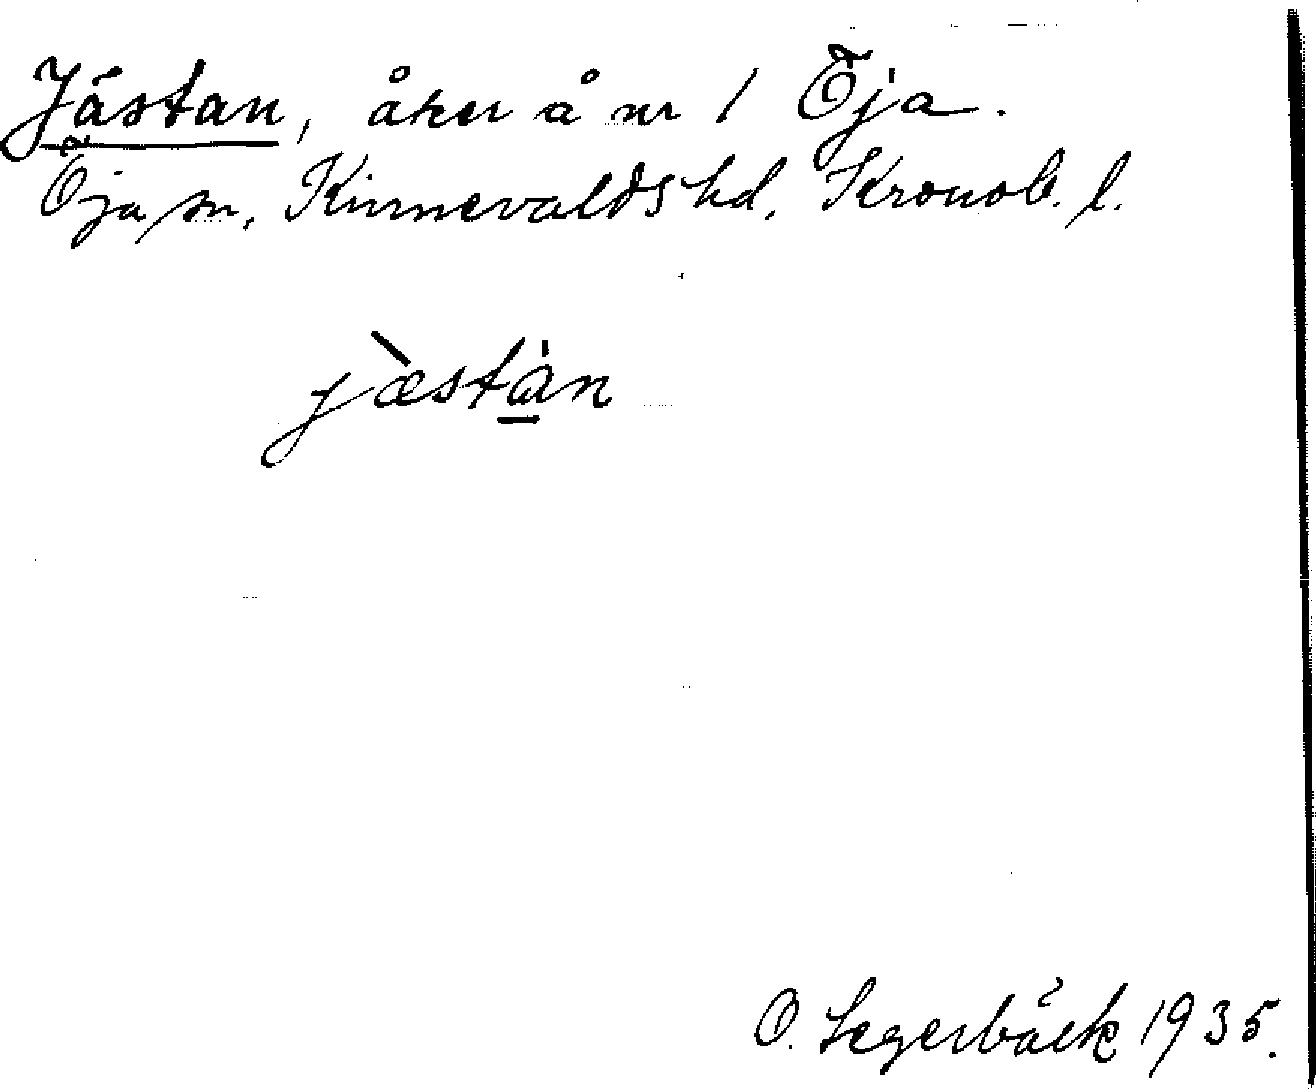 Jästan, åker å nr 1 Öja.
Öja sn, Kinnevalds hd, Kronob. l.
jæ̀stàn
O. Segerbäck 1935.